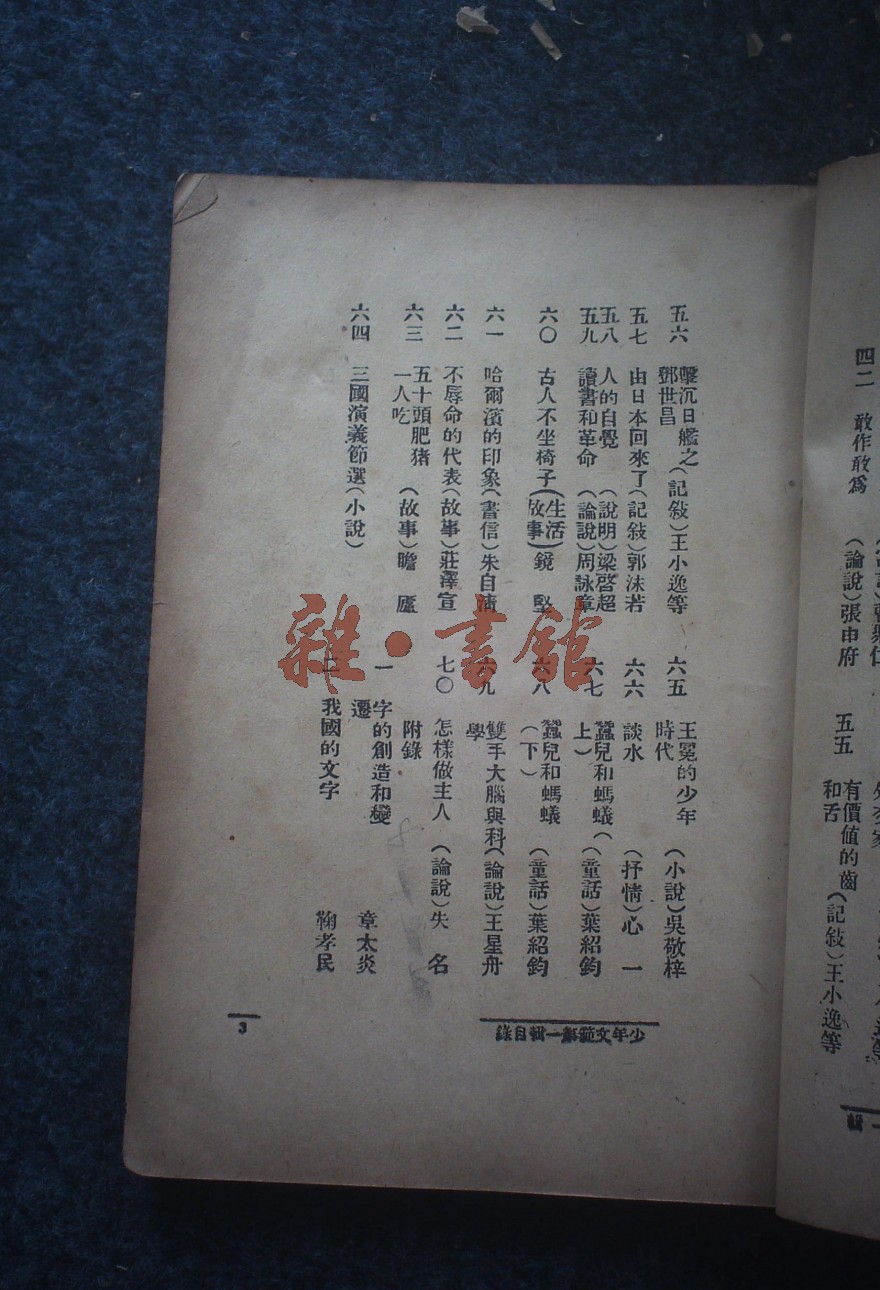 五六 擊沉日艦之鄧世昌（記敍）王小逸等
五七 由日本回來了（記敍）郭沫若
五八 人的自覺（說明）梁啓超
五九 讀書和革命（論說）周詠章
六〇 古人不坐椅子（生活故事）鏡 堅
六一 哈爾濱的印象（書信）朱自淸
六二 不辱命的代表（故事）莊澤宣
六三 五十頭肥猪一人吃（故事）瞻 廬
六四 三國演義節選（小說）
六五 王冕的少年時代（小說）吳敬梓
六六 談水（抒情）心 一
六七 蠶兒和螞蟻（上）（童話）葉紹鈞
六八 蠶兒和螞蟻（下）（童話）葉紹鈞
六九 雙手大腦與科學（論說）王星舟
七〇 怎樣做主人（論說）失 名
附錄
一 字的創造和變遷 章太炎
二 我國的文字 鞠孝民
少年文範第一輯目錄
3
四二 敢作敢爲（論說）張申府
五五 有價値的齒和舌（記敍）王小逸等
一輯
雜·書館